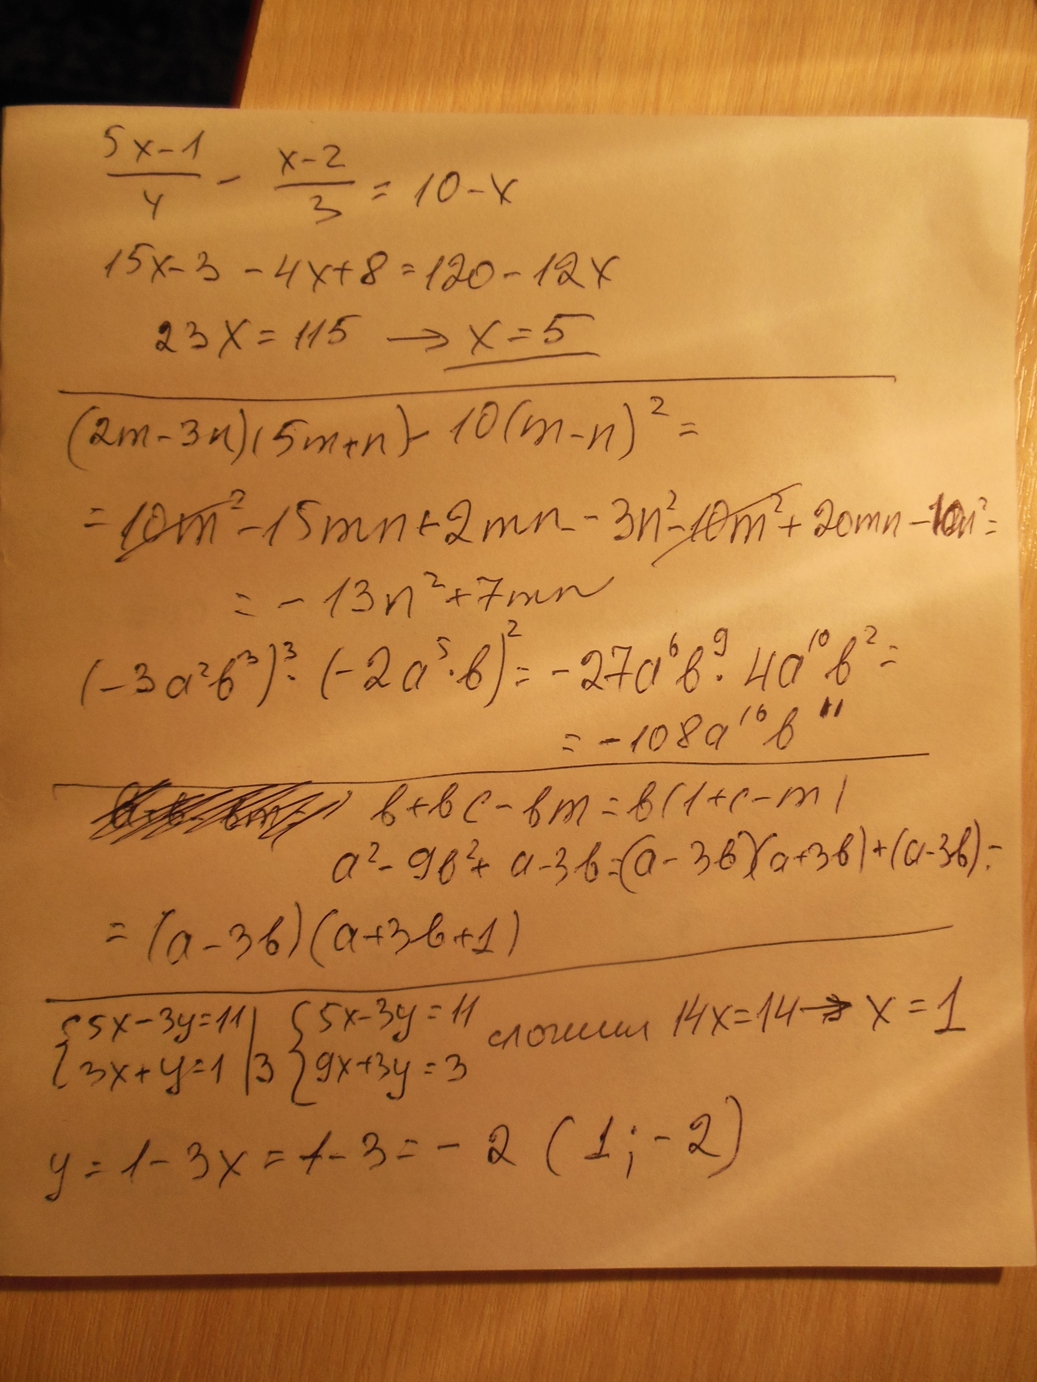 (5x-1)/4 - (x-2)/3 = 10-x
15x-3-4x+8=120-12x
23x=115 → x=5
(2m-3n)(5m+n)-10(m-n)²=
=10m²-15mn+2mn-3n²-10m²+20mn-10n²=
=-13n²+7mn
(-3a²b³)³·(-2a⁵·b)²=-27a⁶b⁹·4a¹⁰b²=
=-108a¹⁶b¹¹
b+bc-bm=b(1+c-m)
a²-9b²+a-3b=(a-3b)(a+3b)+(a-3b)=
=(a-3b)(a+3b+1)
{5x-3y=11 | {5x-3y=11 сложим 14x=14→x=1
{3x+y=1 |3 {9x+3y=3
y=1-3x=1-3=-2 (1;-2)